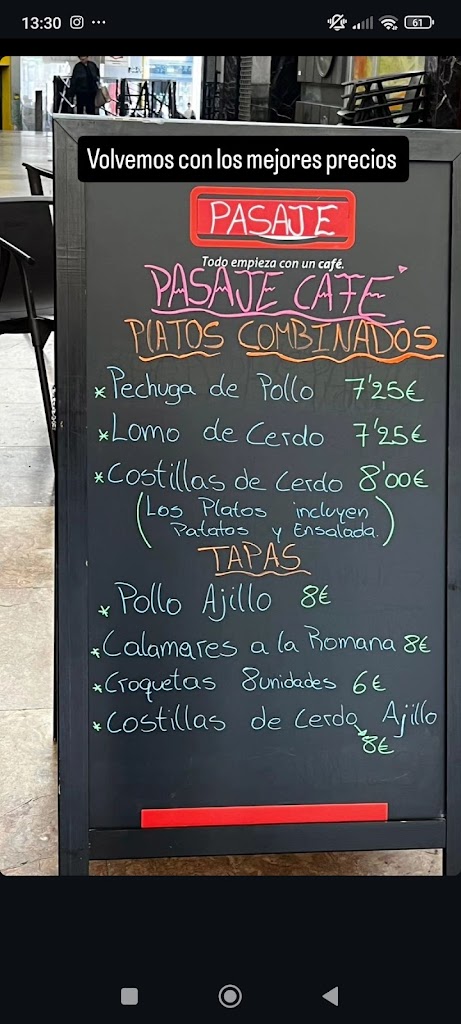 13:30
61
Volvemos con los mejores precios
PASAJE
Todo empieza con un café.
PASAJE CAFE
PLATOS COMBINADOS
*Pechuga de Pollo 7'25€
*Lomo de Cerdo 7'25€
*Costillas de Cerdo 8'00€
(Los Platos incluyen
Patatos y Ensalada.)
TAPAS
*Pollo Ajillo 8€
*Calamares a la Romana 8€
*Croquetas 8unidades 6€
*Costillas de Cerdo Ajillo
8€